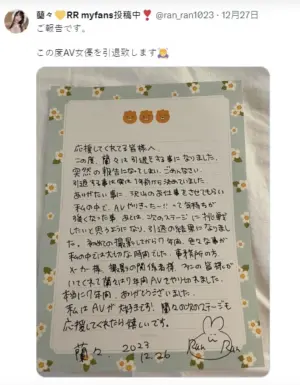 蘭々💛RR myfans投稿中❣️ @ran_ran1023・12月27日
ご報告です。
この度AV女優を引退致します🙇
応援してくれてる皆様へ
この度、蘭々は引退をする事になりました。
突然の報告になってしまい、ごめんなさい。
引退する事は実は1年前から決めていました
ありがたい事に、沢山のお仕事をさせてもらい
私の中で、AVやりきったーって気持ちが
強くなった事、あとは、次のステージに挑戦
したいと思うようになり、引退の結果になりました。
初めての撮影してから7年間、色々な事が
私の中では大切な時間でした。事務所の方
メーカー様、撮影の関係者様、
本当に7年間、ありがとうございました。
私はAVが大好きです! 蘭々の次のステージも
応援してくれたら嬉しいです。
蘭々 2023
12.26
Ran Ran